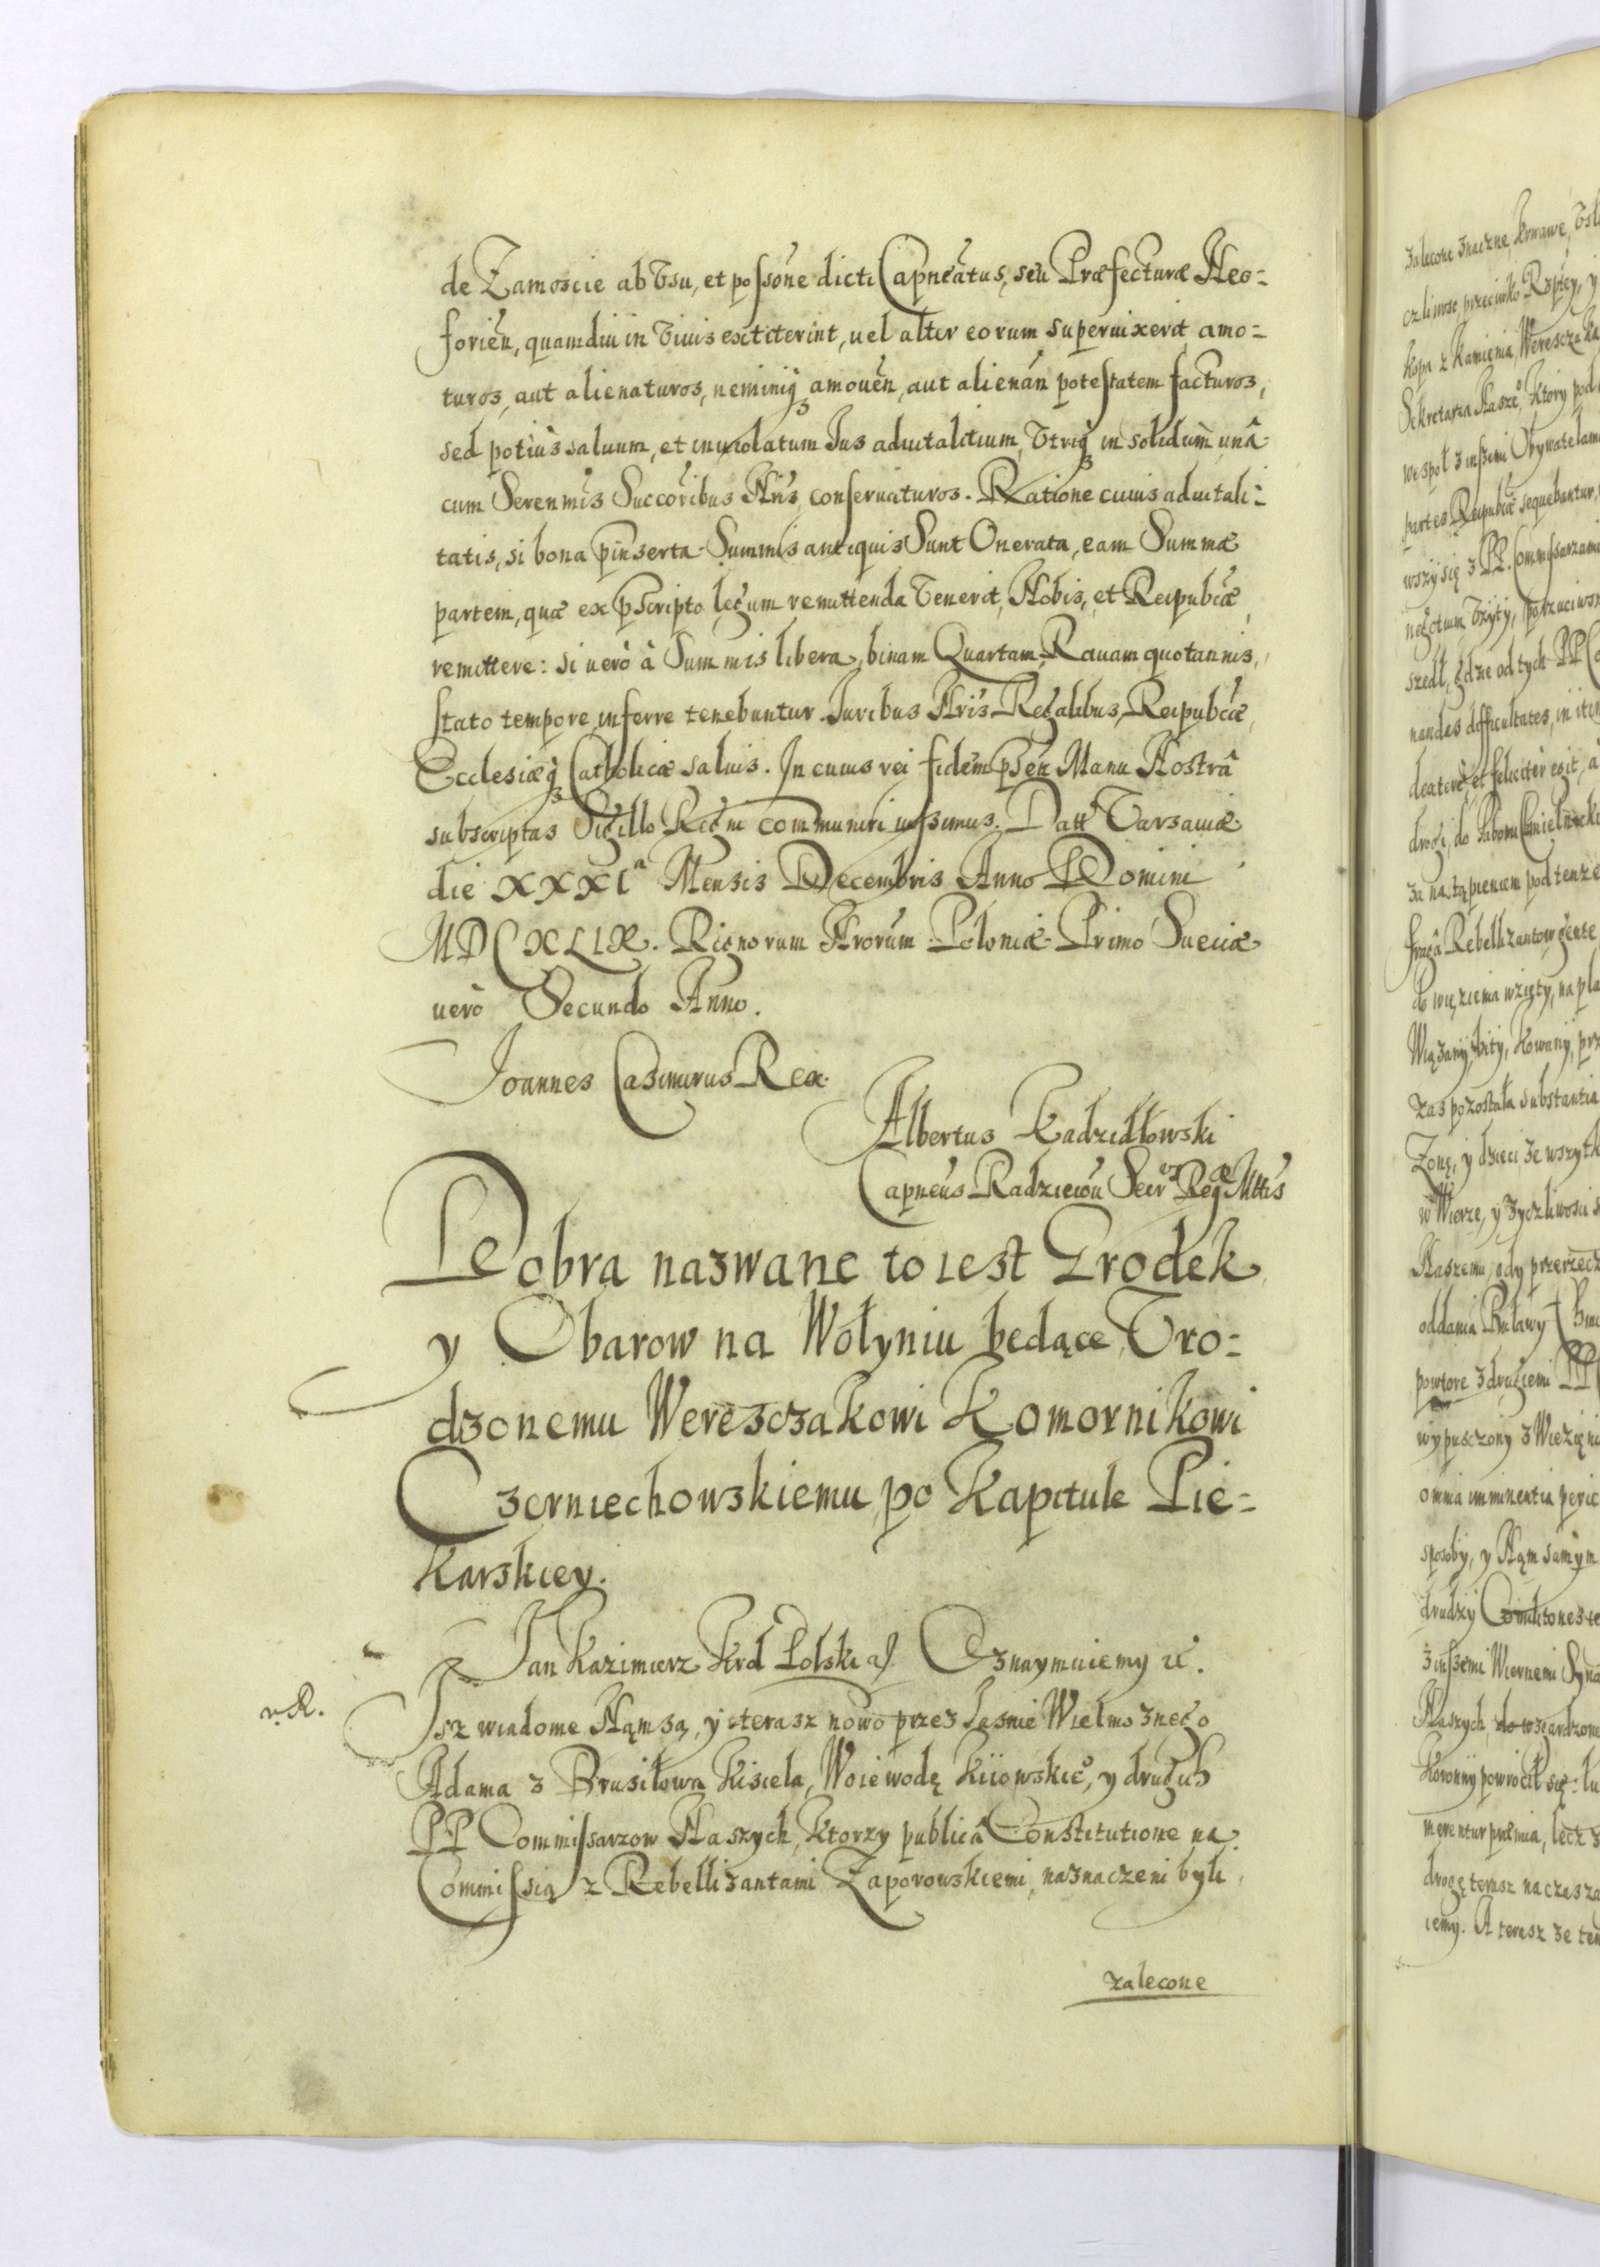 de Zamoscie ab Vsu, et possone dicti Capneatus, seu Præfecturæ Neo-
forien, quamdiu in Viuis extiterint, uel alter eorum superuixerit amo-
turos, aut alienaturos, neminiq amouen, aut alienan potestatem facturos,
sed potiùs saluum, et inuiolatum Ius aduitalitium, Vtriq in solidum unâ
cum Serenmis Succoribus Nris conseruaturos. Ratione cuius aduitali-
tatis, si bona pinserta Summis antiquis Sunt Onerata, eam Summæ
partem, quæ ex pscripto legum remittenda Venerit, Nobis, et Reipubcæ
remittere: si uerò à Summis libera, binam Quartam Rauam quotannis,
stato tempore inferre tenebuntur. Iuribus Nris Regalibus, Reipubcæ,
Ecclesiæq Catholicæ saluis. In cuius rei fidem psen Manu Nostrâ
subscriptas Sigillo Regni communiri iussimus. Datt Varsauiæ
die XXXIª Mensis Decembris Anno Domini
MDCXLIX. Regnorum Nrorum Poloniæ Primo Sueciæ
uerò Secundo Anno.
Joannes Casimirus Rex.
Albertus Kadzidłowski
Capneus Radzieiou Secr Reg Mttis
Dobra nazwane to iest Grodek
y Obarow na Wołyniu będące Vro-
dzonemu Weresczakowi Komornikowi
Czerniechowskiemu po Kapitule Pie-
karskiey.
Jan Kazimierz Krol Polski a/ Oznaymuiemy ić.
v. R.
Isz wiadome Nąm są, y teraz nowo przez Jasnie Wielmoznego
Adama z Brusiłowa Kisiela, Woiewodę Kiiowskie°, y drugich
PP Commissarzow Naszych, ktorzy publicâ Constitutione na
Commissią z Rebellizantami Zaporowskiemi naznaczeni byli
zalecone
zalecone znaczne, krwawe,
czliwosc przeciwko Rzptey, y
kopa z Kamienia Weresczaka
Sekretarza Nasze°, ktory pod
wespoł z inszemi Obywatelami
partes Reipubcæ sequebantur,
wszy się z PP. Commissarzami
szedł, gdzie od tych PP
nandas difficultates, in
et feliciter egit, a
drogi, do Taboru Chmielnicki
za nastąpieniem pod tenze
Rebellizantow gente
do więzienia wzięty, na pla
Wiązany, bity, kowany, prz
zas pozostała substantia
Zonę, y dzieci ze wszytk
w Wierze, y zyczliwosci
Naszemu, gdy przerzecz
oddania Buławy
powtore z drugiemi PP
wypuszczony z Wiezięni
omnia imminentia peric
sposoby, y Nąm samym
drudzy
z inszemi Wiernemi Syna
Naszych, do wzgardzone
Koronny powrocił się:
merentur præmia, lecz
drogę teraz na czasza
iemy. A teraz ze ten